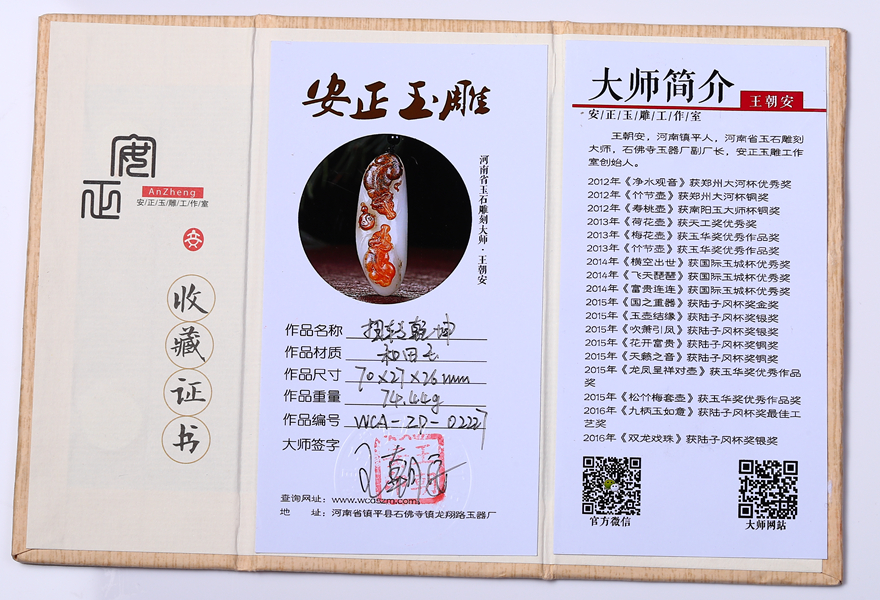 安正
AnZheng
安/正/玉/雕/工/作/室
收藏证书
安正玉雕
河南省玉石雕刻大师·王朝安
作品名称 扭转乾坤
作品材质 和田玉
作品尺寸 70×27×26mm
作品重量 74.44g
作品编号 WCA-ZP-02227
大师签字
查询网址：
地 址：河南省镇平县石佛寺镇龙翔路玉器厂
大师简介
王朝安
安/正/玉/雕/工/作/室
王朝安，河南镇平人，河南省玉石雕刻
大师，石佛寺玉器厂副厂长，安正玉雕工作
室创始人。
2012年《净水观音》获郑州大河杯优秀奖
2012年《竹节壶》获郑州大河杯铜奖
2012年《寿桃壶》获南阳玉大师杯铜奖
2013年《荷花壶》获天工奖优秀奖
2013年《梅花壶》获玉华奖优秀作品奖
2013年《竹节壶》获玉华奖优秀作品奖
2014年《横空出世》获国际玉城杯优秀奖
2014年《飞天琵琶》获国际玉城杯优秀奖
2014年《富贵连连》获国际玉城杯优秀奖
2015年《国之重器》获陆子冈杯奖金奖
2015年《玉壶结缘》获陆子冈杯奖银奖
2015年《吹箫引凤》获陆子冈杯奖银奖
2015年《花开富贵》获陆子冈杯奖铜奖
2015年《天籁之音》获陆子冈杯奖铜奖
2015年《龙凤呈祥对壶》获玉华奖优秀作品
奖
2015年《松竹梅套壶》获玉华奖优秀作品奖
2016年《九柄玉如意》获陆子冈杯奖最佳工
艺奖
2016年《双龙戏珠》获陆子冈杯奖银奖
官方微信
大师网站